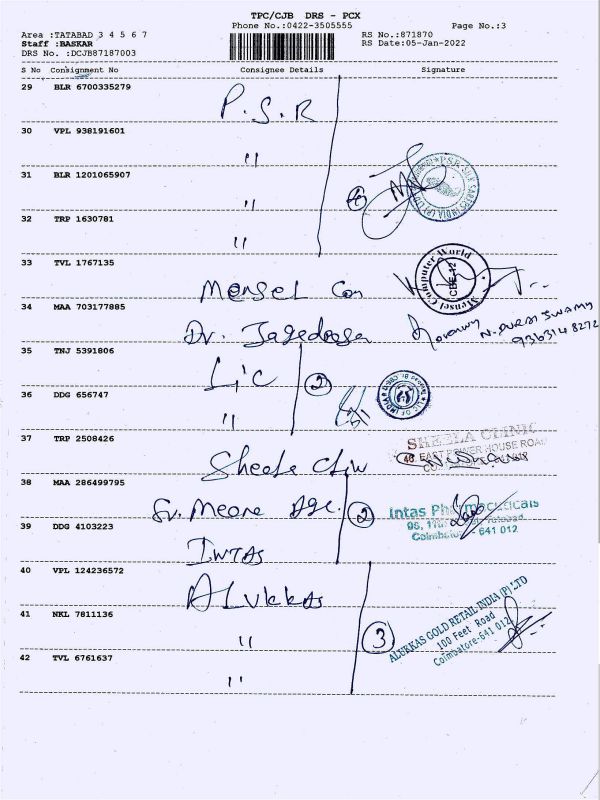 TPC/CJB DRS - PCX
Phone No.:0422-3505555 Page No.:3
Area :TATABAD 3 4 5 6 7 RS No.:871870
Staff :BASKAR RS Date:05-Jan-2022
DRS No. :DCJB87187003
S No Consignment No Consignee Details Signature
29 BLR 6700335279
P.S.R
30 VPL 938191601
"
31 BLR 1201065907
" 4 P.S.R SILK SAREES INDIA (P) LTD
32 TRP 1630781
"
33 TVL 1767135
Mensel Com Mensel Computer World CBE-12
34 MAA 703177885
Dr. N. DURAI SWAMY
9363148272
35 TNJ 5391806
LIC 2
36 DDG 656747
"
37 TRP 2508426
Sheela SHEELA CLINIC
48, EAST POWER HOUSE ROAD
38 MAA 286499795
Sri. Meena Age. 2 Intas Pharmaceuticals
641 012
39 DDG 4103223
INTAS
40 VPL 124236572
ALUKKAS
41 NKL 7811136
" 3 ALUKKAS GOLD RETAIL INDIA (P) LTD
100 Feet Road
Coimbatore-641 012
42 TVL 6761637
"